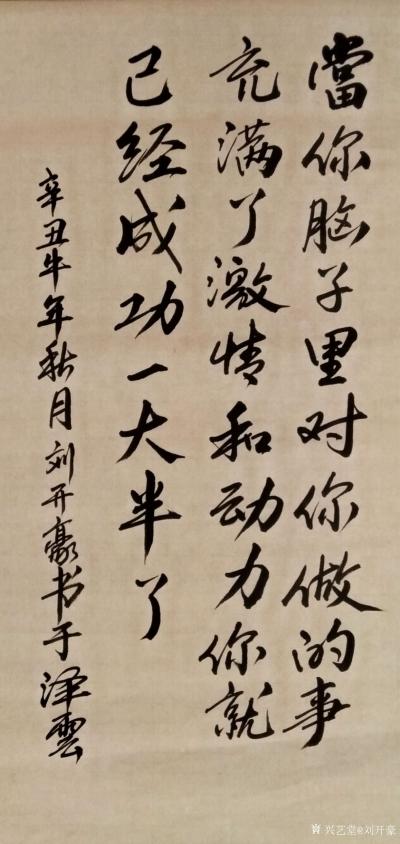 當你脑子里对你做的事
充满了激情和动力你就
已经成功一大半了
辛丑牛年秋月刘开豪书于泽雲
兴艺堂@刘开豪